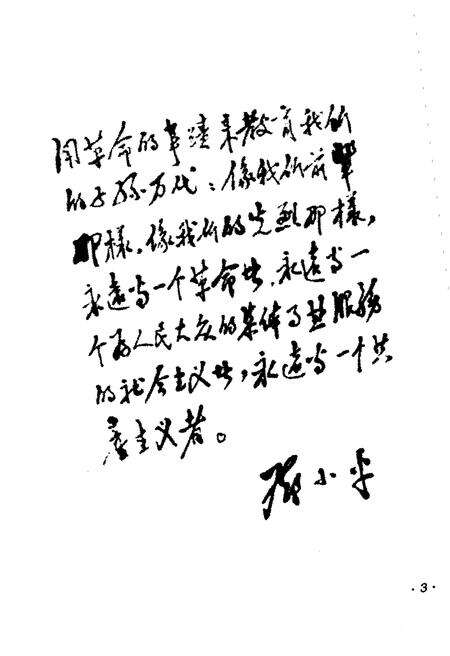 用革命的事蹟来教育我们
的子孙万代：像我们前輩
那樣，像我们的先烈那樣，
永遠当一个革命者，永遠当一
个为人民大众的集体事业服務
的社会主义者，永遠当一个共
產主义者。
邓小平
·3·